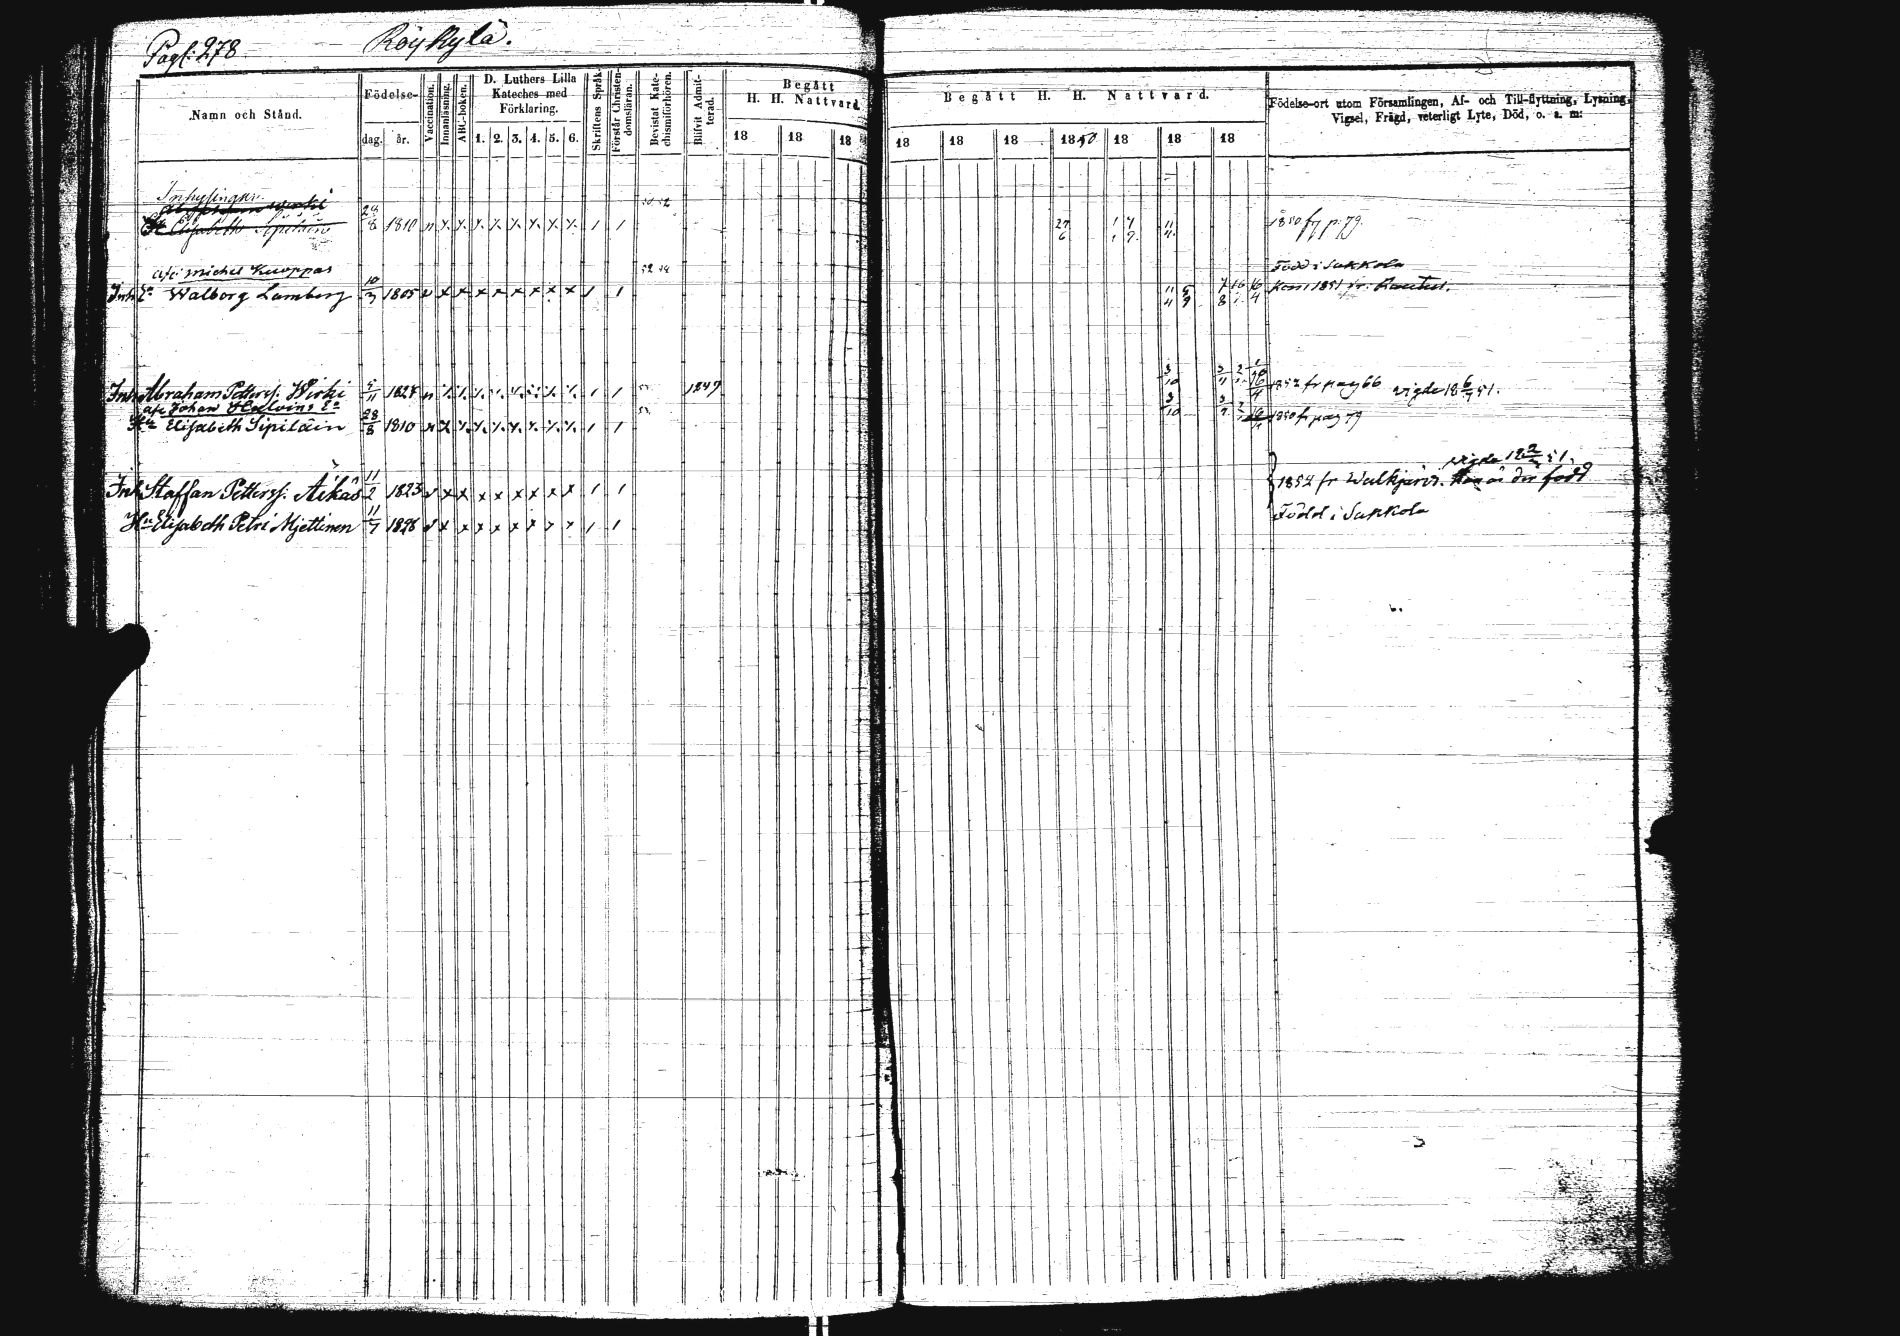 Pag: 278 Röykylä.
Namn och Stånd.
Födelse-
dag. år.
Vaccination.
Innanläsning.
ABC-boken.
D. Luthers Lilla
Kateches med
Förklaring.
1. 2. 3. 4. 5. 6.
Skriftens Språk.
Förstår Christen-
domsläran.
Bevistat Kate-
chismiförhören.
Blifvit Admit-
terad.
Begått
H. H. Nattvard
18 18 18
Begått H. H. Nattvard.
18 18 18 1850 18 18 18
Födelse-ort utom Församlingen, Af- och Till-flyttning, Lysning,
Vigsel, Frägd, veterligt Lyte, Död, o. s. m:
Inhysingar
Elisabeth Sipiläin 28/8 1810 1850 fr p. 79.
afl: Michel Kuoppas Född i Sakkola
Inh. Ea Walborg Lamberg 10/3 1805 kom 1851 fr. Rautus.
Inh. Abraham Petterss. Wirki 5/11 1827 1847 1852 fr pag 66 vigde 18 6/4 51.
afl Johan Halvoins Ea
Hu Elisabeth Sipiläin 28/8 1810 1850 fr pag 79
vigde 18 51.
Inh Staffan Petterss. Äikäs 11/2 1823 1852 fr Walkjärvi. född
Hu Elisabeth Petri Mjettinen 11/7 1828 Född i Sakkola